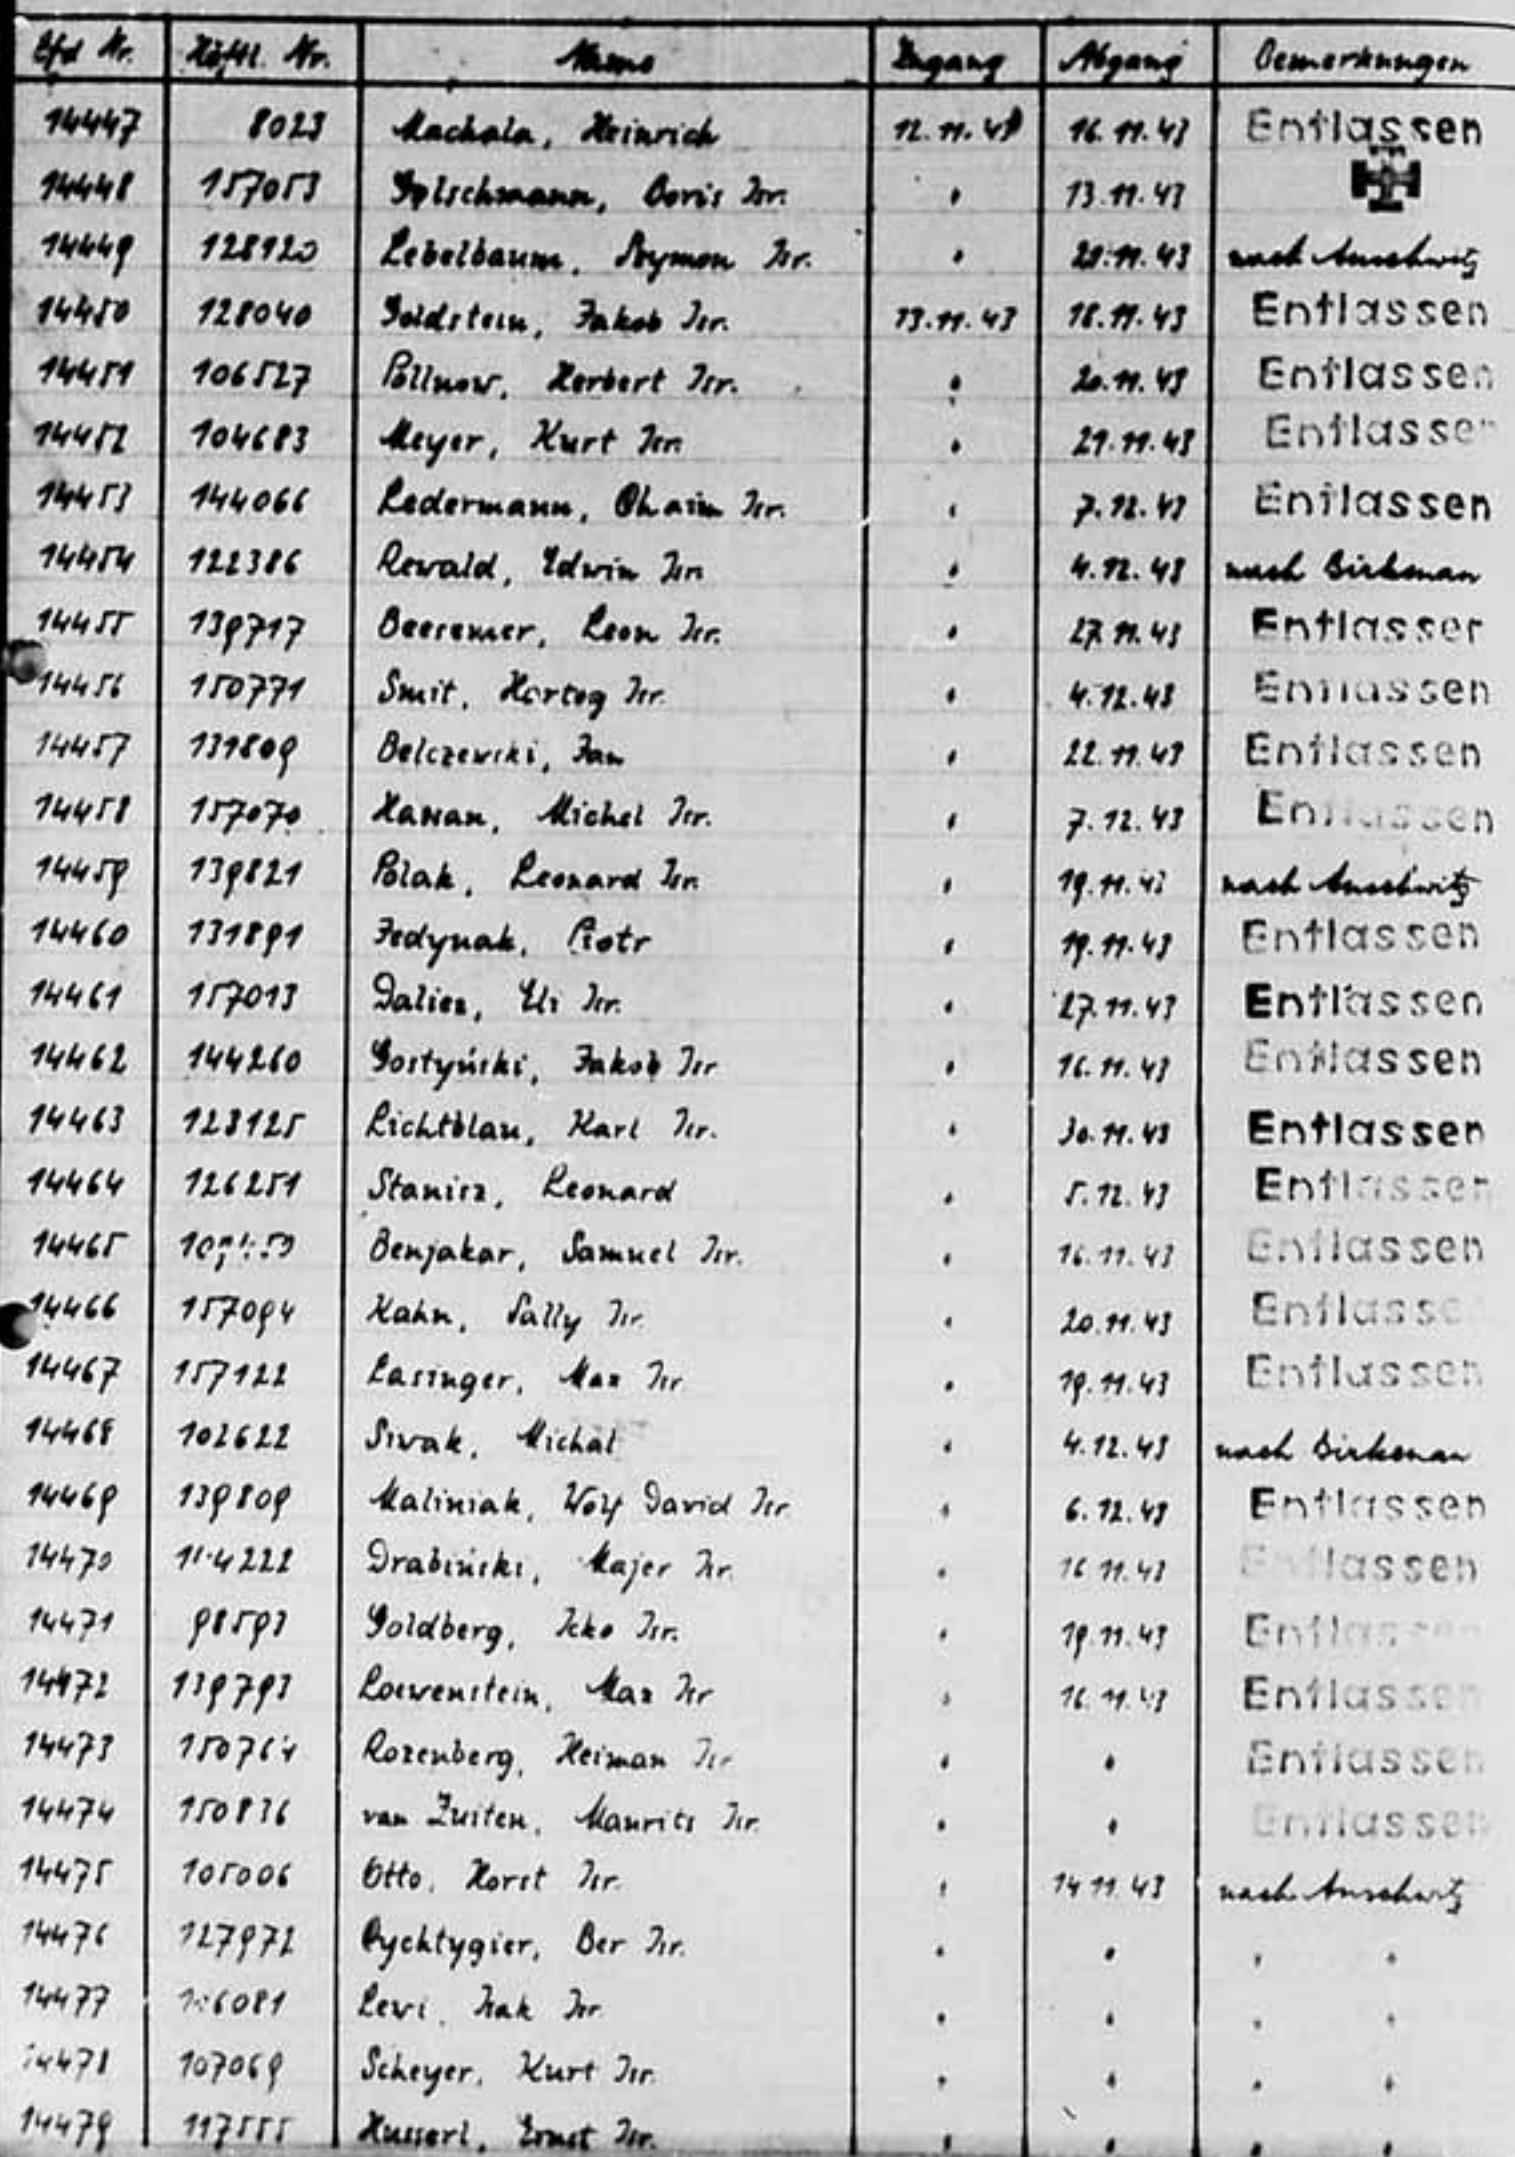 Lfd Nr. Häftl. Nr. Name Zugang Abgang Bemerkungen
14447 8023 Machala, Heinrich 12.11.43 16.11.43 Entlassen
14448 157053 Boris Isr. " 13.11.43
14449 128120 Lebelbaum, Szymon Isr. " 20.11.43 nach Auschwitz
14450 128040 Goldstein, Jakob Isr. 13.11.43 18.11.43 Entlassen
14451 106527 Pollnow, Herbert Isr. " 20.11.43 Entlassen
14452 104683 Meyer, Kurt Isr. " 21.11.43 Entlassen
14453 144066 Ledermann, Chaim Isr. " 7.12.43 Entlassen
14454 122386 Rewald, Edwin Isr. " 4.12.43 nach Birkenau
14455 139717 Beeremer, Leon Isr. " 27.11.43 Entlassen
14456 150771 Smit, Hartog Isr. " 4.12.43 Entlassen
14457 131809 Belczewski, Jan " 22.11.43 Entlassen
14458 157070 Hassan, Michel Isr. " 7.12.43 Entlassen
14459 139821 Polak, Leonard Isr. " 19.11.43 nach Auschwitz
14460 131891 Fedynak, Piotr " 19.11.43 Entlassen
14461 157013 Dalien, Eli Isr. " 27.11.43 Entlassen
14462 144260 Gostyński, Jakob Isr " 16.11.43 Entlassen
14463 123125 Lichtblau, Karl Isr. " 30.11.43 Entlassen
14464 126251 Stanisz, Leonard " 5.12.43 Entlassen
14465 Benjakar, Samuel Isr. " 16.11.43 Entlassen
14466 157094 Kahn, Sally Isr. " 20.11.43 Entlassen
14467 157122 Lasinger, Max Isr " 19.11.43 Entlassen
14468 102622 Sivak, Michal " 4.12.43 nach Birkenau
14469 139809 Maliniak, Wolf David Isr " 6.12.43 Entlassen
14470 Drabiński, Majer Isr. " 16.11.43 Entlassen
14471 98593 Goldberg, Icko Isr. " 19.11.43 Entlassen
14472 139793 Loewenstein, Max Isr " 16.11.43 Entlassen
14473 150764 Rozenberg, Heiman Isr " " Entlassen
14474 150836 van Zuiten, Maurits Isr. " " Entlassen
14475 105006 Otto, Horst Isr. " 14.11.43 nach Auschwitz
14476 127972 Rychtygier, Ber Isr. " " " "
14477 Lewi, Isak Isr " " " "
14478 107069 Scheyer, Kurt Isr. " " " "
14479 117555 Husserl, Ernst Isr. " " " "